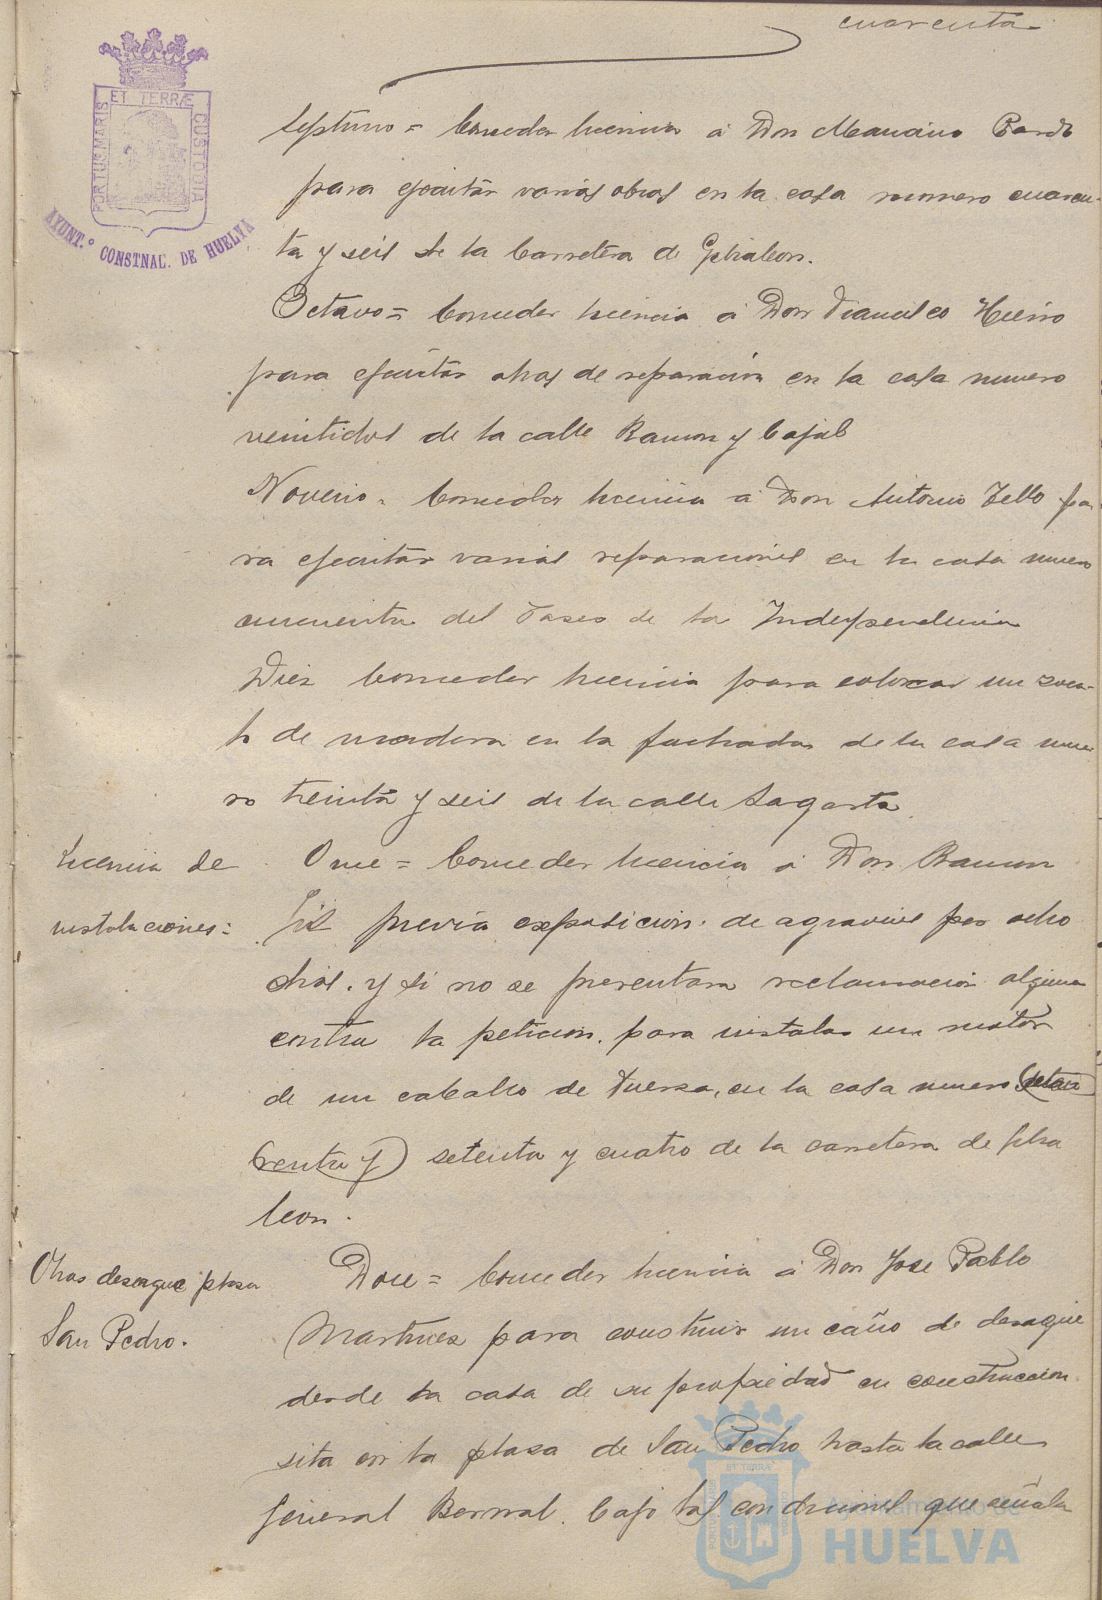 cuarenta
PORTUS MARIS ET TERRÆ CUSTODIA
AYUNT.º CONSTNAL. DE HUELVA
Septimo = Conceder licencia á Don Mariano Pardo
para ejecutar varias obras en la casa numero cuaren-
ta y seis de la Carretera de Gibraleon.
Octavo = Conceder licencia á Don Francisco Hierro
para ejecutar obras de reparación en la casa numero
veintidos de la calle Ramon y Cajal
Noveno = Conceder licencia á Don Antonio Tello pa-
ra ejecutar varias reparaciones en la casa numero
cincuenta del Paseo de la Independencia
Diez Conceder licencia para colocar un zoca-
lo de madera en la fachada de la casa nume-
ro treinta y seis de la calle Sagasta.
Licencia de
instalaciones =
Once = Conceder licencia á Don Ramon
Gil previa exposicion de agravios por ocho
dias, y si no se presentara reclamacion alguna
contra la peticion, para instalar un motor
de un caballo de fuerza, en la casa numero
(renta y) setenta y cuatro de la carretera de Gibra
leon.
Obras desague plaza
San Pedro.
Doce = Conceder licencia á Don Jose Pablo
Martinez para construir un caño de desague
desde la casa de su propiedad en construccion
sita en la plaza de San Pedro hasta la calle
General Bernal, bajo las condiciones que señala
Ayuntamiento de
HUELVA